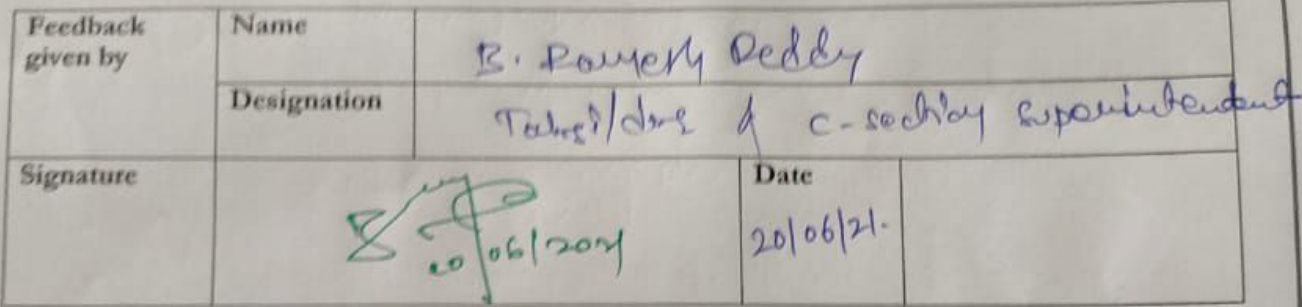 Feedback given by
Name
B. Ramesh Reddy
Designation
Tahsildar & C-section Superintendent
Signature
20/06/2021
Date
20/06/21.